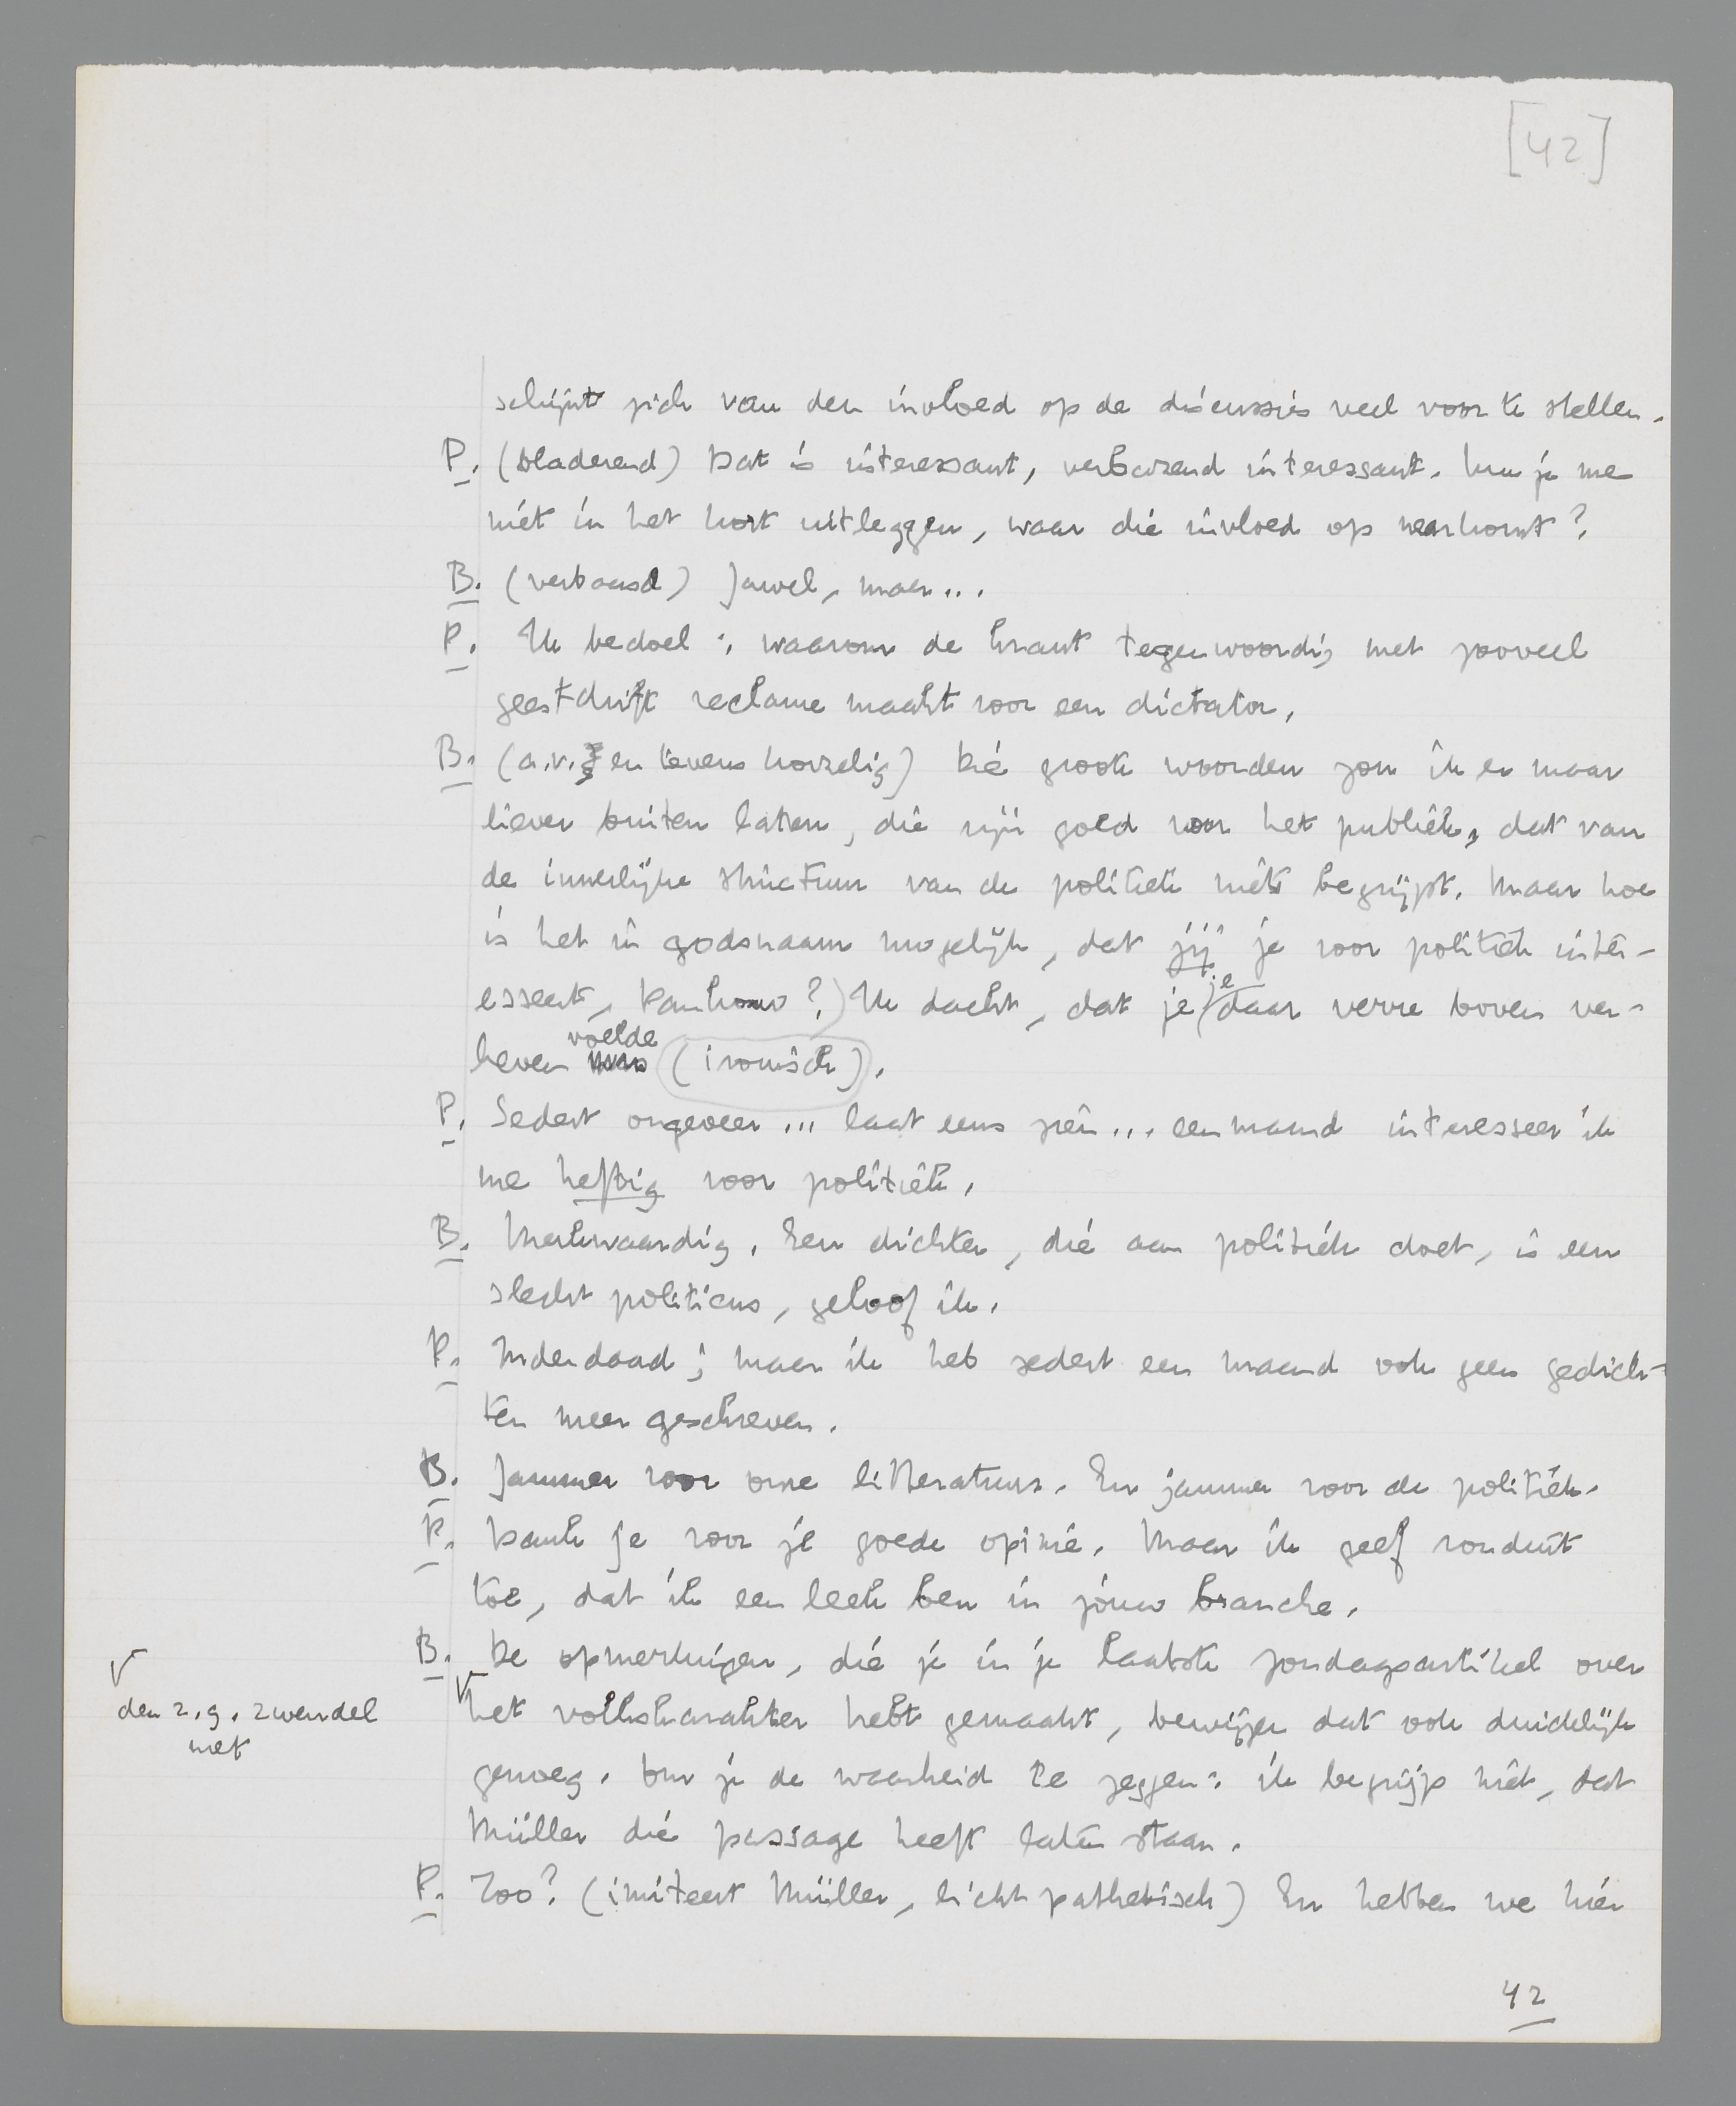 [42]
schijnt zich van den invloed op de discussies veel voor te stellen.
P. (bladerend) Dat is interessant, verbazend interessant. Kun je me
niet in het kort uitleggen, waar die invloed op neerkomt?
B. (verbaasd) Jawel, maar...
P. Ik bedoel: waarom de krant tegenwoordig met zooveel
geestdrift reclame maakt voor een dictator.
B. (a.v. en tevens korzelig) Die groote woorden zou ik er maar
liever buiten laten, die zijn goed voor het publiek, dat van
de innerlijke structuur van de politiek niets begrijpt. Maar hoe
is het in godsnaam mogelijk, dat jij je voor politiek inter-
esseert, Pankouw?) Ik dacht, dat je je daar verre boven ver-
heven voelde (ironisch).
P. Sedert ongeveer ... laat eens zien ... een maand interesseer ik
me heftig voor politiek.
B. Merkwaardig. Een dichter, die aan politiek doet, is een
slecht politicus, geloof ik.
P. Inderdaad; maar ik heb sedert een maand ook geen gedich-
ten meer geschreven.
B. Jammer voor onze litteratuur. En jammer voor de politiek.
P. Dank je voor je goede opinie. Maar ik geef ronduit
toe, dat ik een leek ben in jouw branche.
B. De opmerkingen, die je in je laatste zondagsartikel over
den z.g. zwendel
met
het volkskarakter hebt gemaakt, bewijzen dat ook duidelijk
genoeg. Om je de waarheid te zeggen: ik begrijp niet, dat
Müller die passage heeft laten staan.
P. Zoo? (imiteert Müller, licht pathetisch) En hebben we hier
42